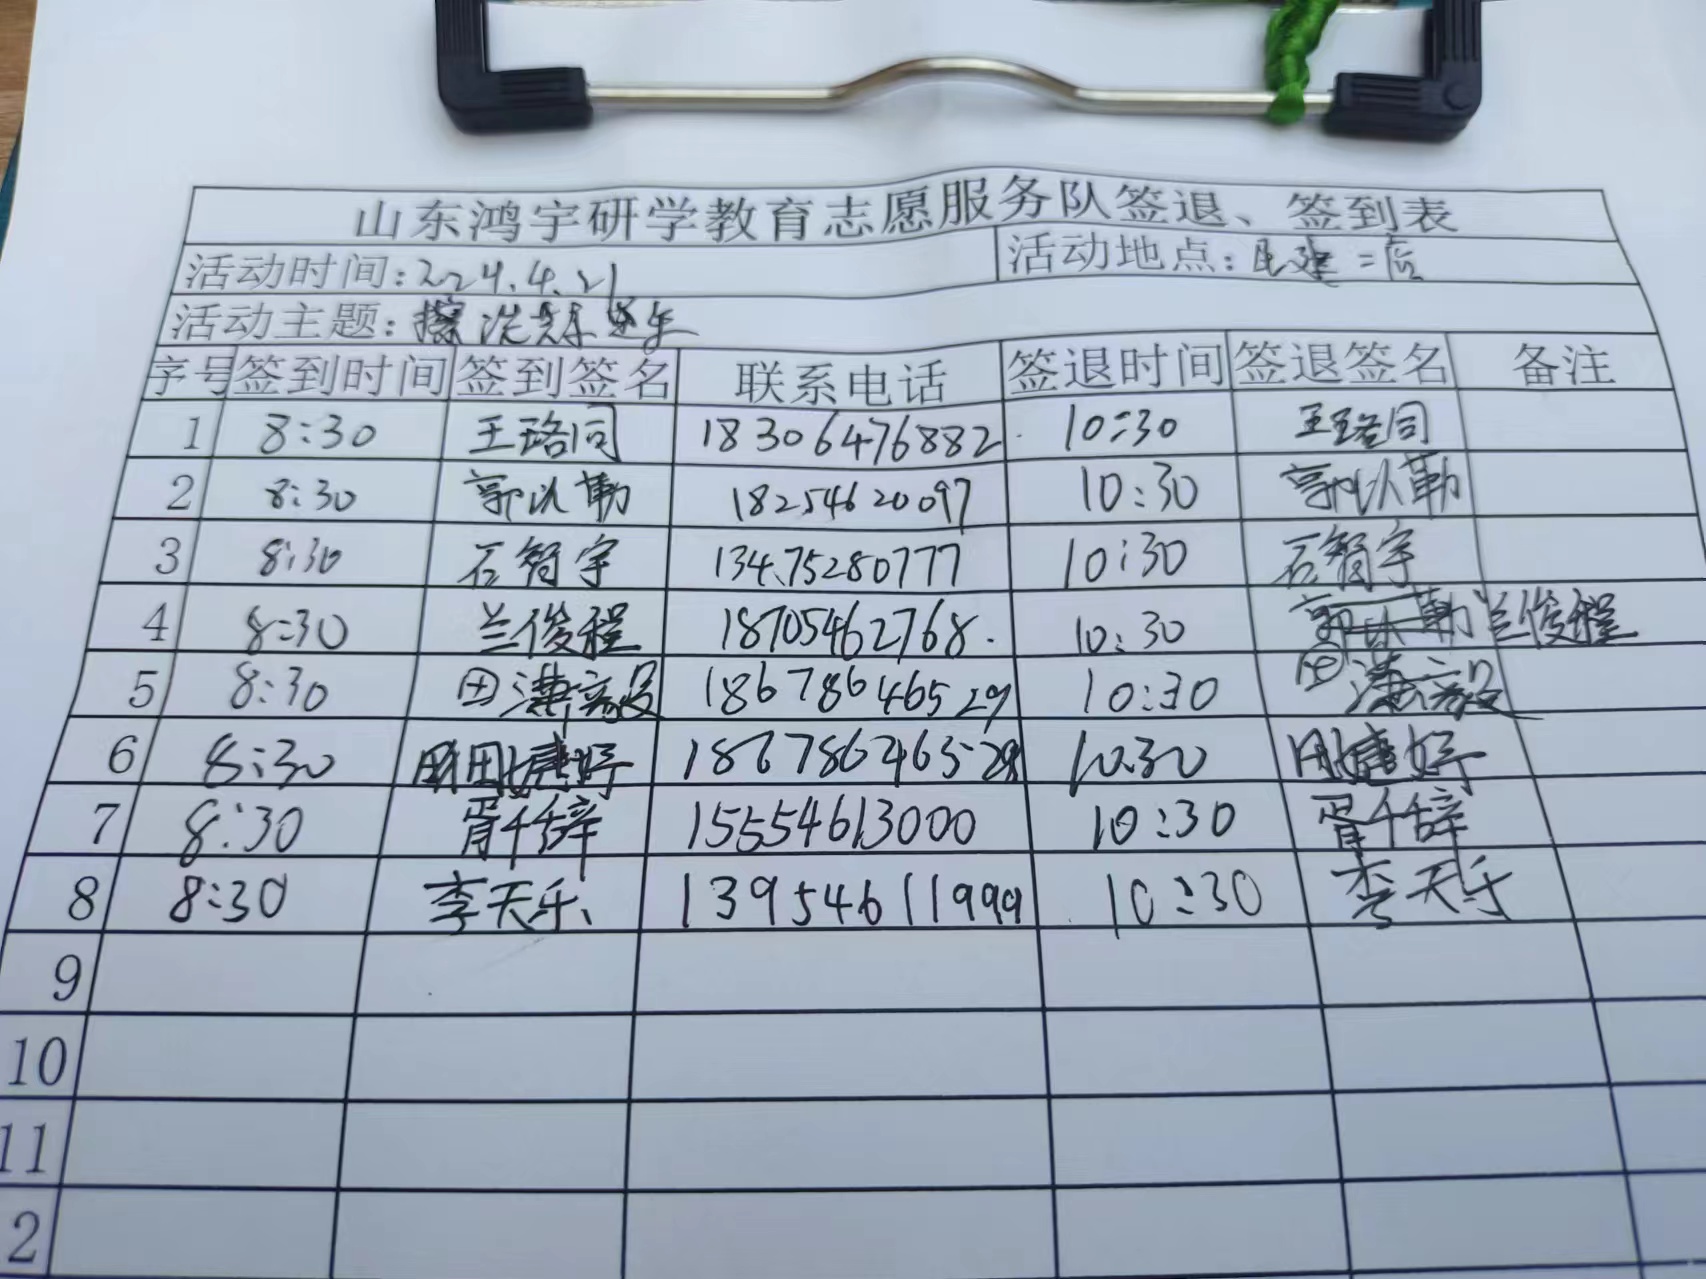 山东鸿宇研学教育志愿服务队签退、签到表
活动时间:2024.4.21 活动地点:民建二店
活动主题:擦洗共享单车
序号 签到时间 签到签名 联系电话 签退时间 签退签名 备注
1 8:30 王珞同 18306476882 10:30 王珞同
2 8:30 郭以勤 18254620097 10:30 郭以勤
3 8:30 石智宇 13475280777 10:30 石智宇
4 8:30 兰俊程 18705462768 10:30 郭以勤 兰俊程
5 8:30 田 18678646529 10:30 田
6 8:30 18678646529 10:30
7 8:30 胥千辞 15554613000 10:30 胥千辞
8 8:30 李天乐 13954611999 10:30 李天乐
9
10
11
2